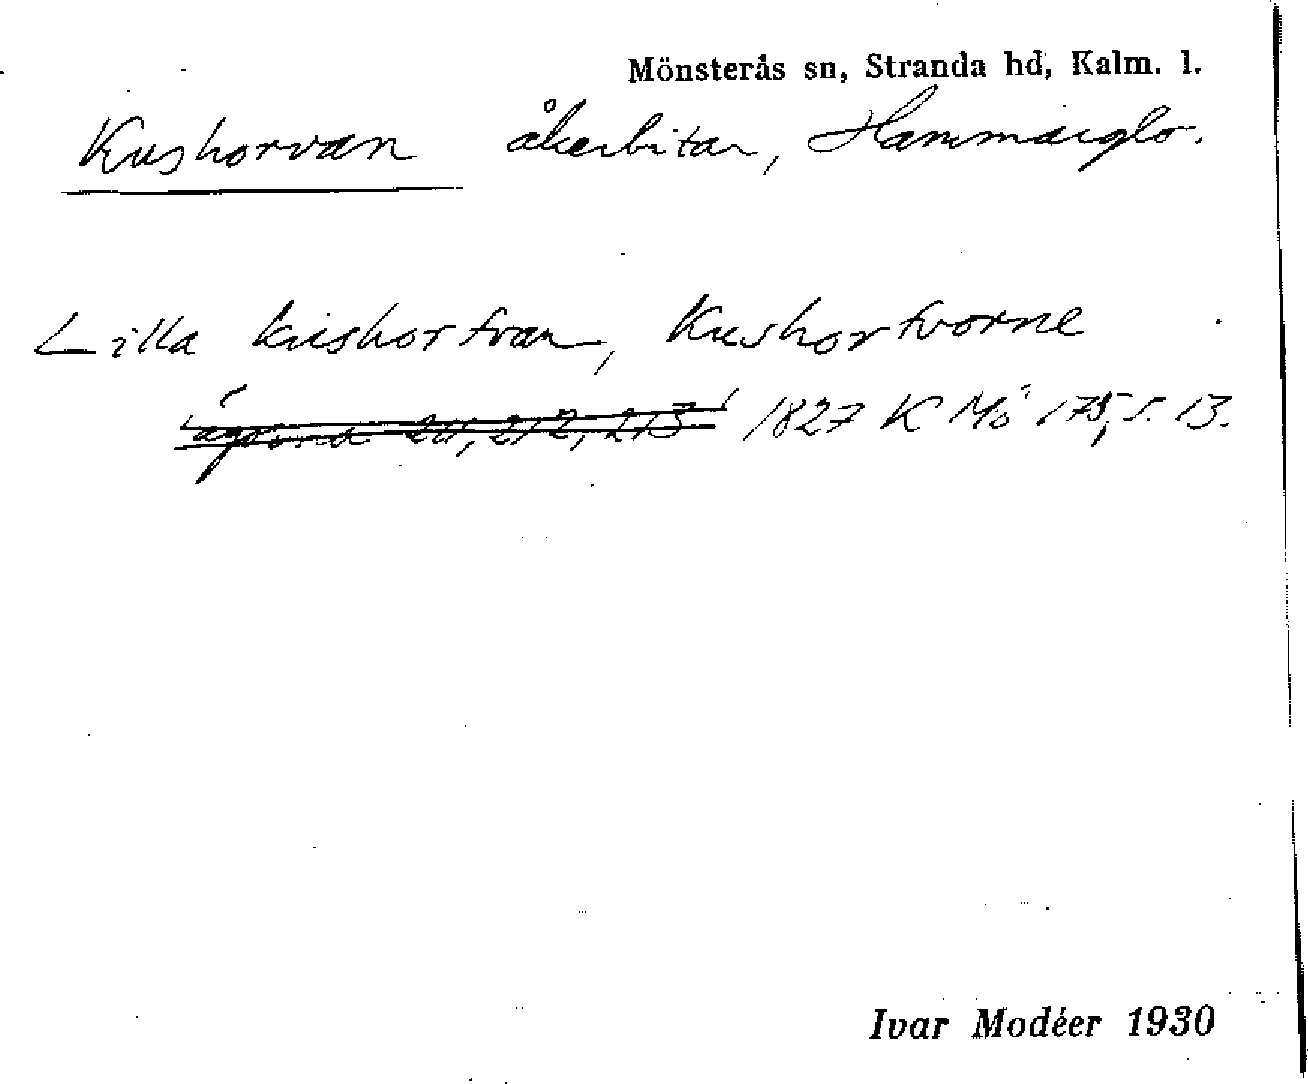 Mönsterås sn, Stranda hd, Kalm. l.
Kushorvan åkerbitar, Hammarglo.
Lilla kushortvan, Kushortvorne
211, 212, 213 1827 K Mö 175, s. 13.
Ivar Modéer 1930